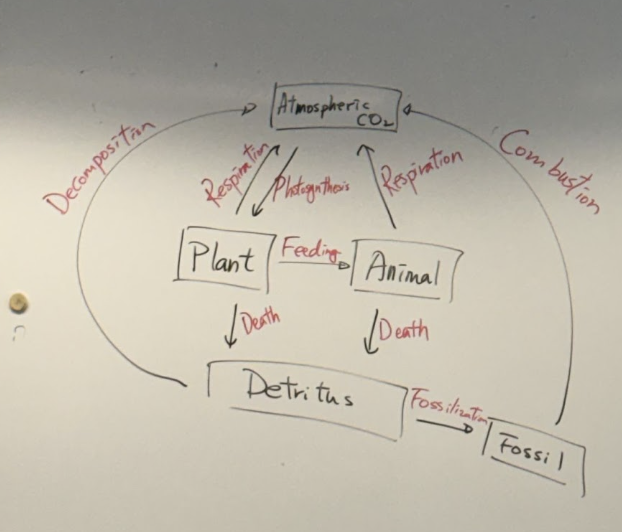 Atmospheric
CO₂
Decomposition
Respiration
Photosynthesis
Respiration
Combustion
Plant
Feeding
Animal
Death
Death
Detritus
Fossilization
Fossil